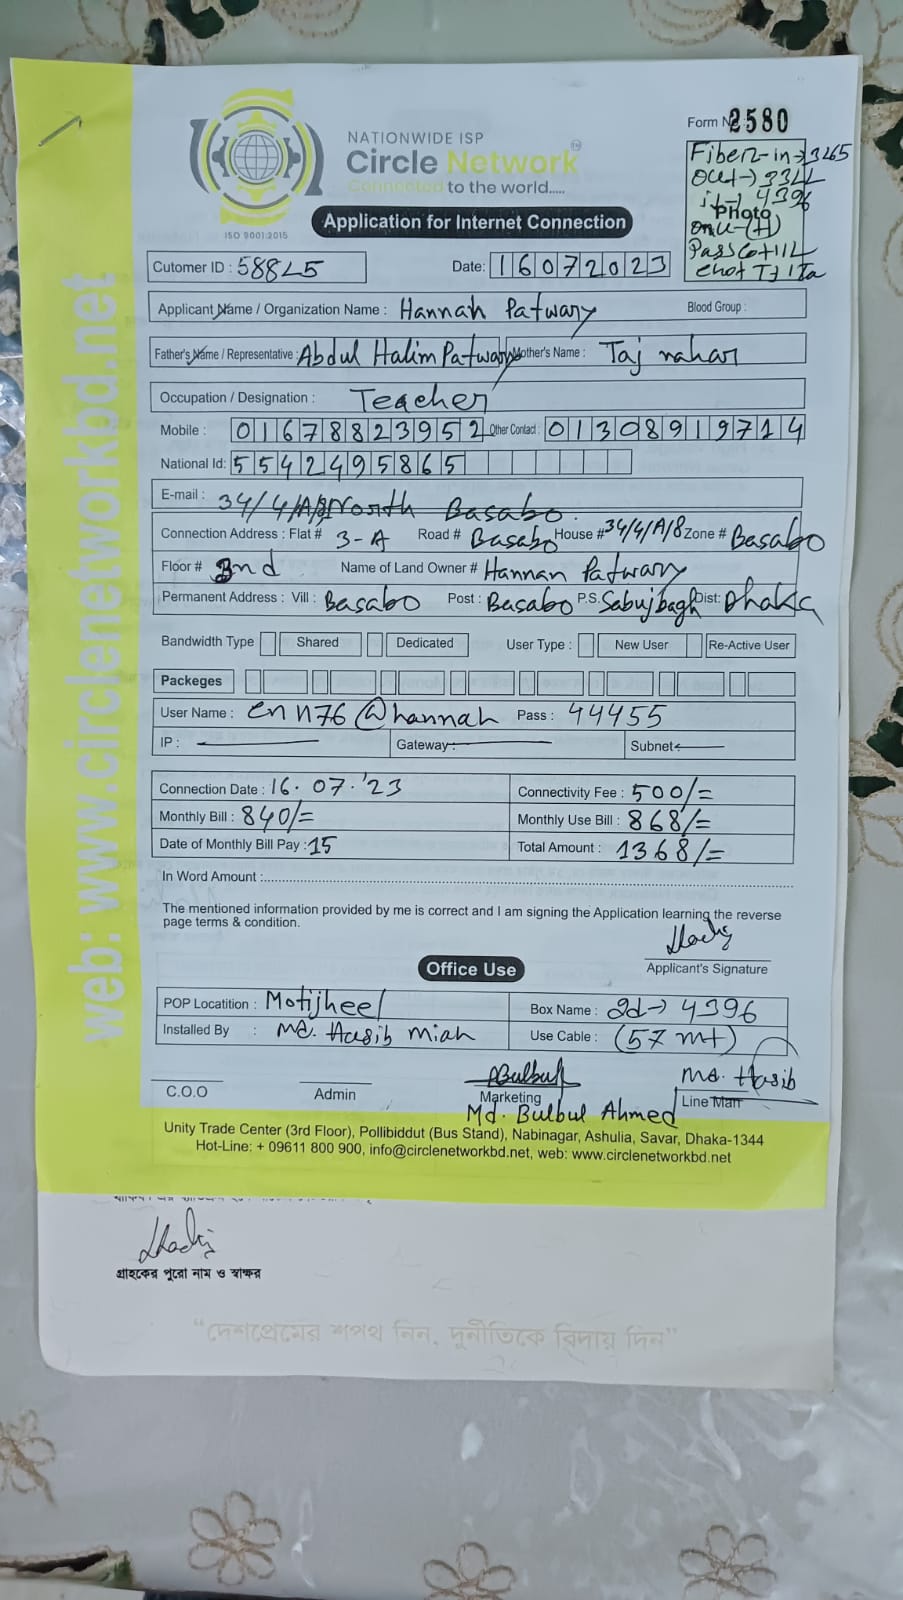 Form No 2580
NATIONWIDE ISP
Circle Network
Connected to the world.....
ISO 9001:2015
Fiber-in→3265
Photo
Application for Internet Connection
Cutomer ID : 58825 Date: 16072023
Applicant Name / Organization Name : Hannah Patwary Blood Group :
Father's Name / Representative : Abdul Halim Patwary Mother's Name : Taj nahar
Occupation / Designation : Teacher
Mobile : 01678823952 Other Contact : 01308919714
National Id: 5542495865
E-mail : 34/4/A/8 North Basabo
Connection Address : Flat # 3-A Road # Basabo House # 34/4/A/8 Zone # Basabo
Floor # 3nd Name of Land Owner # Hannan Patwary
Permanent Address : Vill : Basabo Post : Basabo P.S. Sabujbagh Dist: Dhaka
Bandwidth Type Shared Dedicated User Type : New User Re-Active User
Packeges
User Name : cnn76@hannah Pass : 44455
IP : Gateway: Subnet
Connection Date : 16.07.'23 Connectivity Fee : 500/=
Monthly Bill : 840/= Monthly Use Bill : 868/=
Date of Monthly Bill Pay : 15 Total Amount : 1368/=
In Word Amount :
The mentioned information provided by me is correct and I am signing the Application learning the reverse
page terms & condition.
Applicant's Signature
Office Use
POP Locatition : Motijheel Box Name : 2d→4396
Installed By : Md. Hasib Miah Use Cable : (57 mt)
Bulbul Md. Hasib
C.O.O Admin Marketing Line Man
Md. Bulbul Ahmed
Unity Trade Center (3rd Floor), Pollibiddut (Bus Stand), Nabinagar, Ashulia, Savar, Dhaka-1344
Hot-Line: + 09611 800 900, info@circlenetworkbd.net, web: www.circlenetworkbd.net
web: www.circlenetworkbd.net
গ্রাহকের পুরো নাম ও স্বাক্ষর
“দেশপ্রেমের শপথ নিন, দুর্নীতিকে বিদায় দিন”